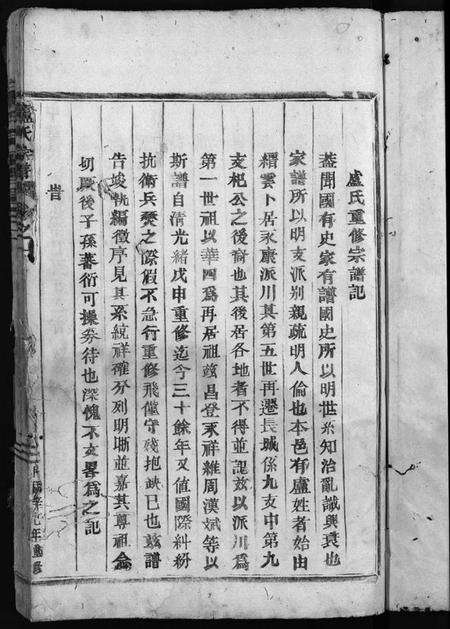 盧氏重修宗譜記
蓋聞國有史家有譜國史所以明世系知治亂識興衰也
家譜所以明支派別親疏明人倫也本邑有盧姓者始由
縉雲卜居永康派川其第五世再遷長城係九支中第九
支杞公之後裔也其後居各地者不得並記茲以派川為
第一世祖以華四為再居祖茲昌登永祥雜周漢斌等以
斯譜自清光緒戊申重修迄今三十餘年又值國際糾紛
抗衛兵燹之際假不急行重修飛僅守殘抱缺已也茲譜
告竣執編徵序見其系統祥確分列明晰並嘉其尊祖念
切厥後子孫蕃衍可操券待也深愧不文畧為之記
旹
盧氏宗譜